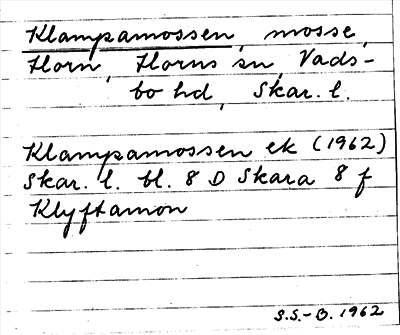 Klampamossen, mosse,
Horn, Horns sn, Vads-
bo hd, Skar. l.
Klampamossen ek (1962)
Skar. l. bl. 8 D Skara 8 f
Klyftamon
S.S.-B. 1962